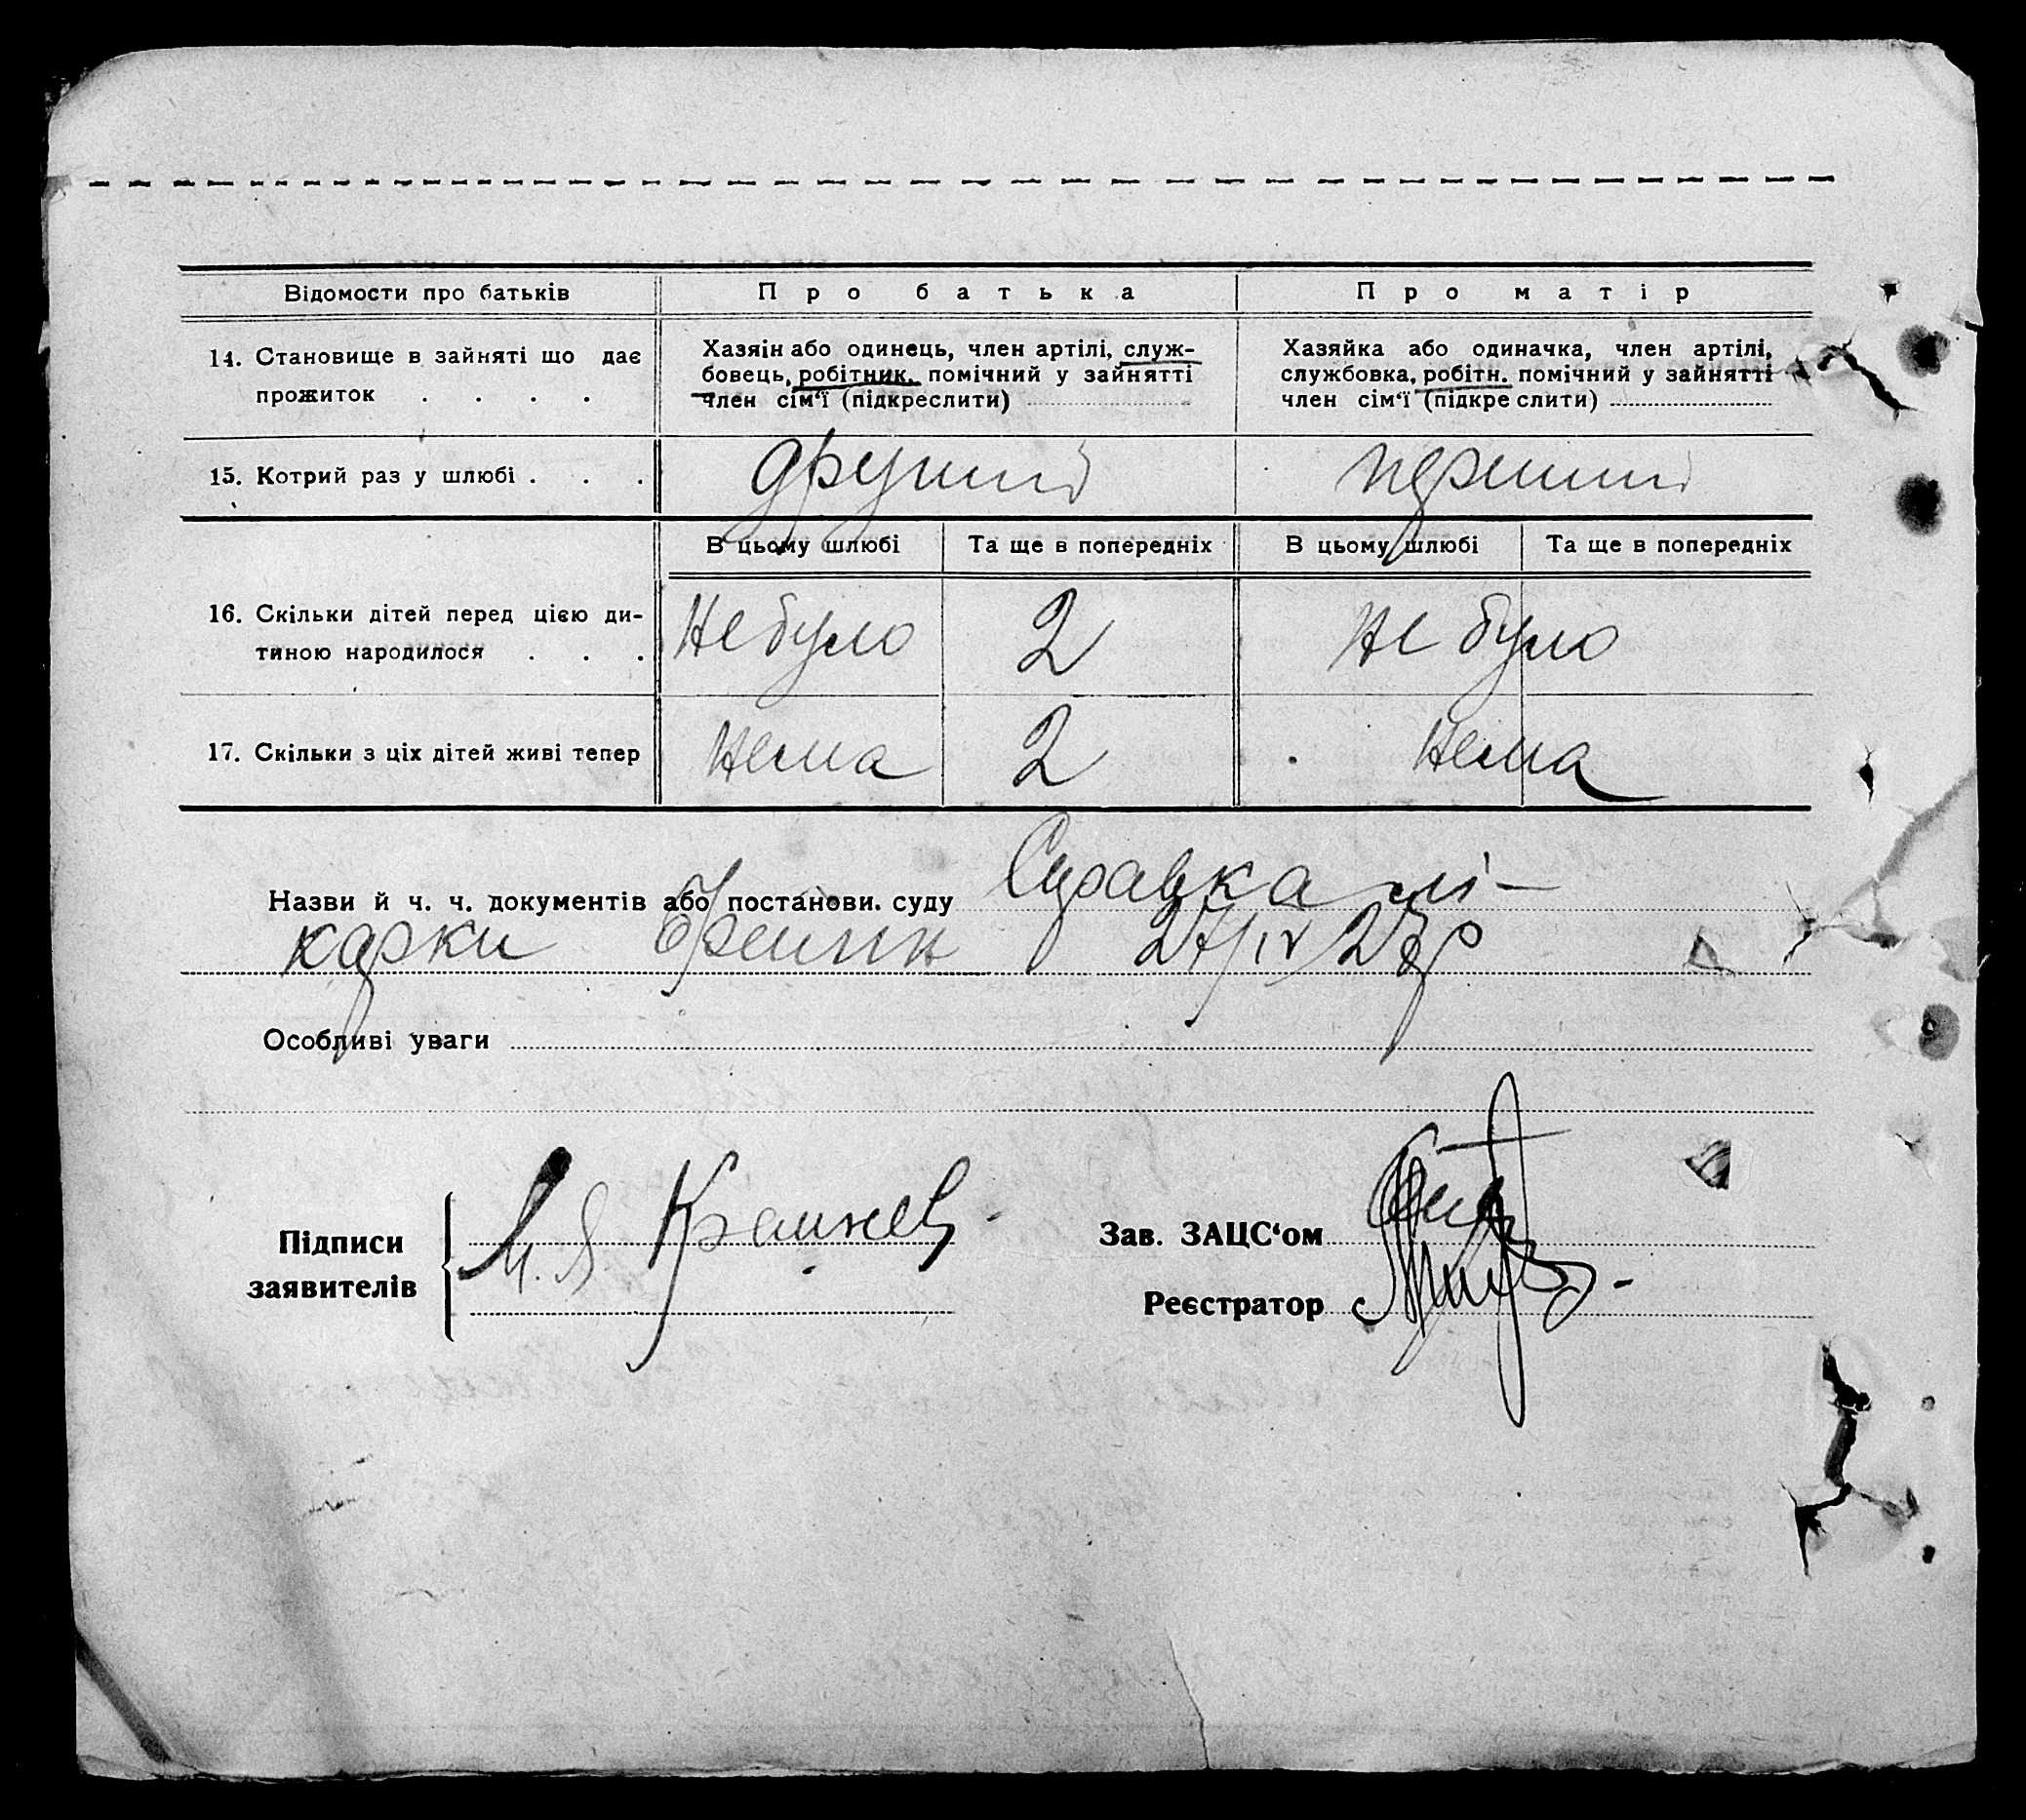 Відомости про батьків Про батька Про матір
14. Становище в зайняті що дає прожиток . . . .
Хазяїн або одинець, член артілі, служ-
бовець, робітник, помічний у зайнятті
член сім‘ї (підкреслити)
Хазяйка або одиначка, член артілі,
службовка, робітн. помічний у зайнятті
член сім‘ї (підкреслити)
15. Котрий раз у шлюбі . . . другий перший
В цьому шлюбі Та ще в попередніх В цьому шлюбі Та ще в попередніх
16. Скільки дітей перед цією ди-
тиною народилося . . . Не було 2 Не було
17. Скільки з ціх дітей живі тепер Нема 2 Нема
Назви й ч. ч. документів або постанови. суду Справка лі-
карки 27/IV 27р
Особливі уваги
Підписи
заявителів
Зав. ЗАЦС‘ом
Реєстратор